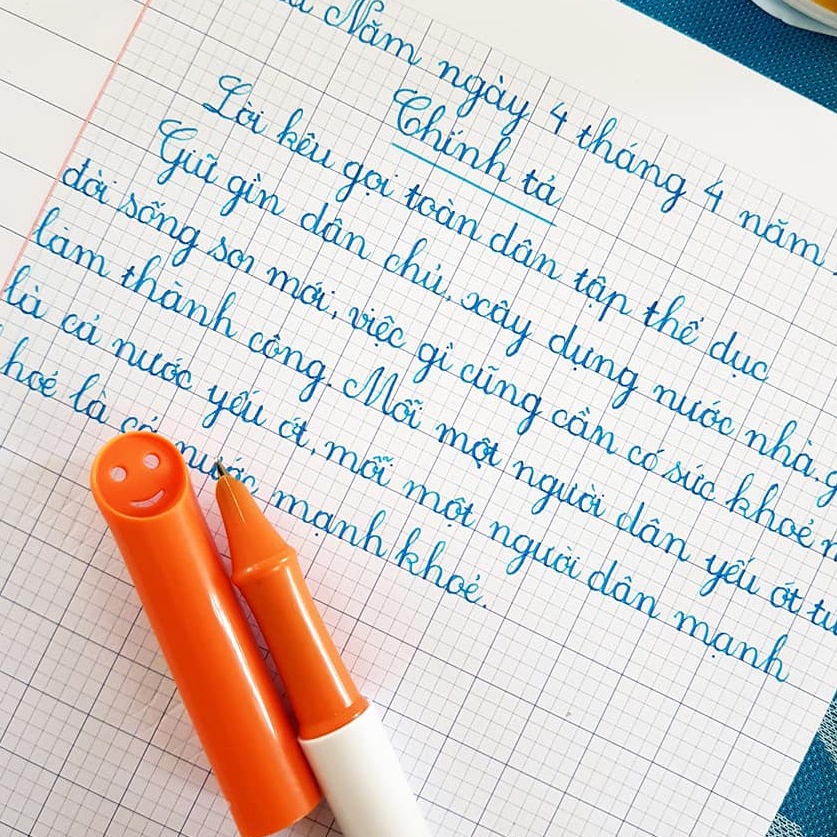 Năm ngày 4 tháng 4 năm
Chính tả
Lời kêu gọi toàn dân tập thể dục
Giữ gìn dân chủ, xây dựng nước nhà, g
đời sống mới, việc gì cũng cần có sức khoẻ m
làm thành công. Mỗi một người dân yếu ớt tức
là cả nước yếu ớt, mỗi một người dân mạnh
khoẻ là cả nước mạnh khoẻ.